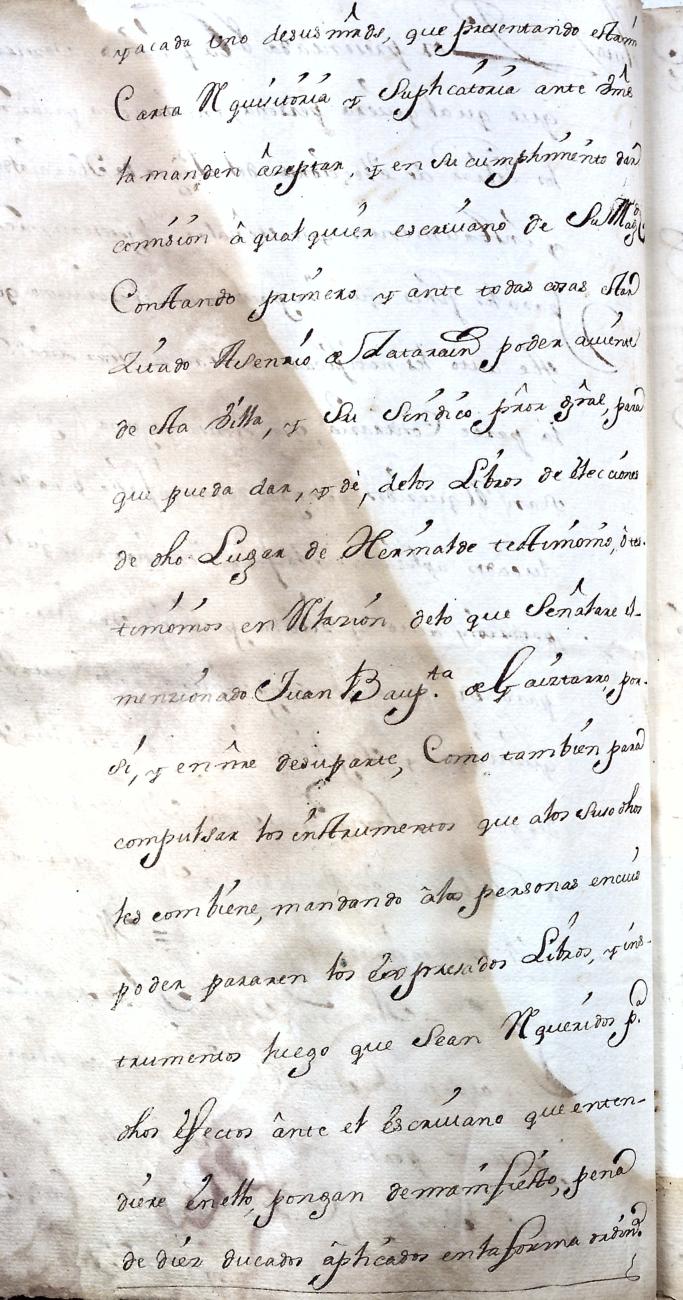 y acada uno desus mrds, que presentando esta mi
Carta Rquisitoria y Suplicatoria ante Vms
la manden azeptar, y en su cumplimiento dar
comision â qualquier escriuano de Su Magd
Constando primero y ante todas cosas estar
Zitado Asenzio de Zatarain poder auiente
de esta Villa, y Su Sindico pror gral, para
que pueda dar, y dè, delos Libros de elecciones
de dho Lugar de Hernialde testimonio, ô tes-
timonios en Rlazion delo que Señalare el
menzionado Juan Baupta de Gaiztarro, por
si, y en nre desuparte, Como tambien para
compulsar los instrumentos que alos suso dhos
les combiene, mandando âlas personas encuio
poder pararen los expresados Libros, y ins-
trumentos luego que Sean Rqueridos pa
dhos efectos ânte el Escriuano que enten-
diere enello, pongan demanifiesto, pena
de diez ducados âplicados enla forma ordina